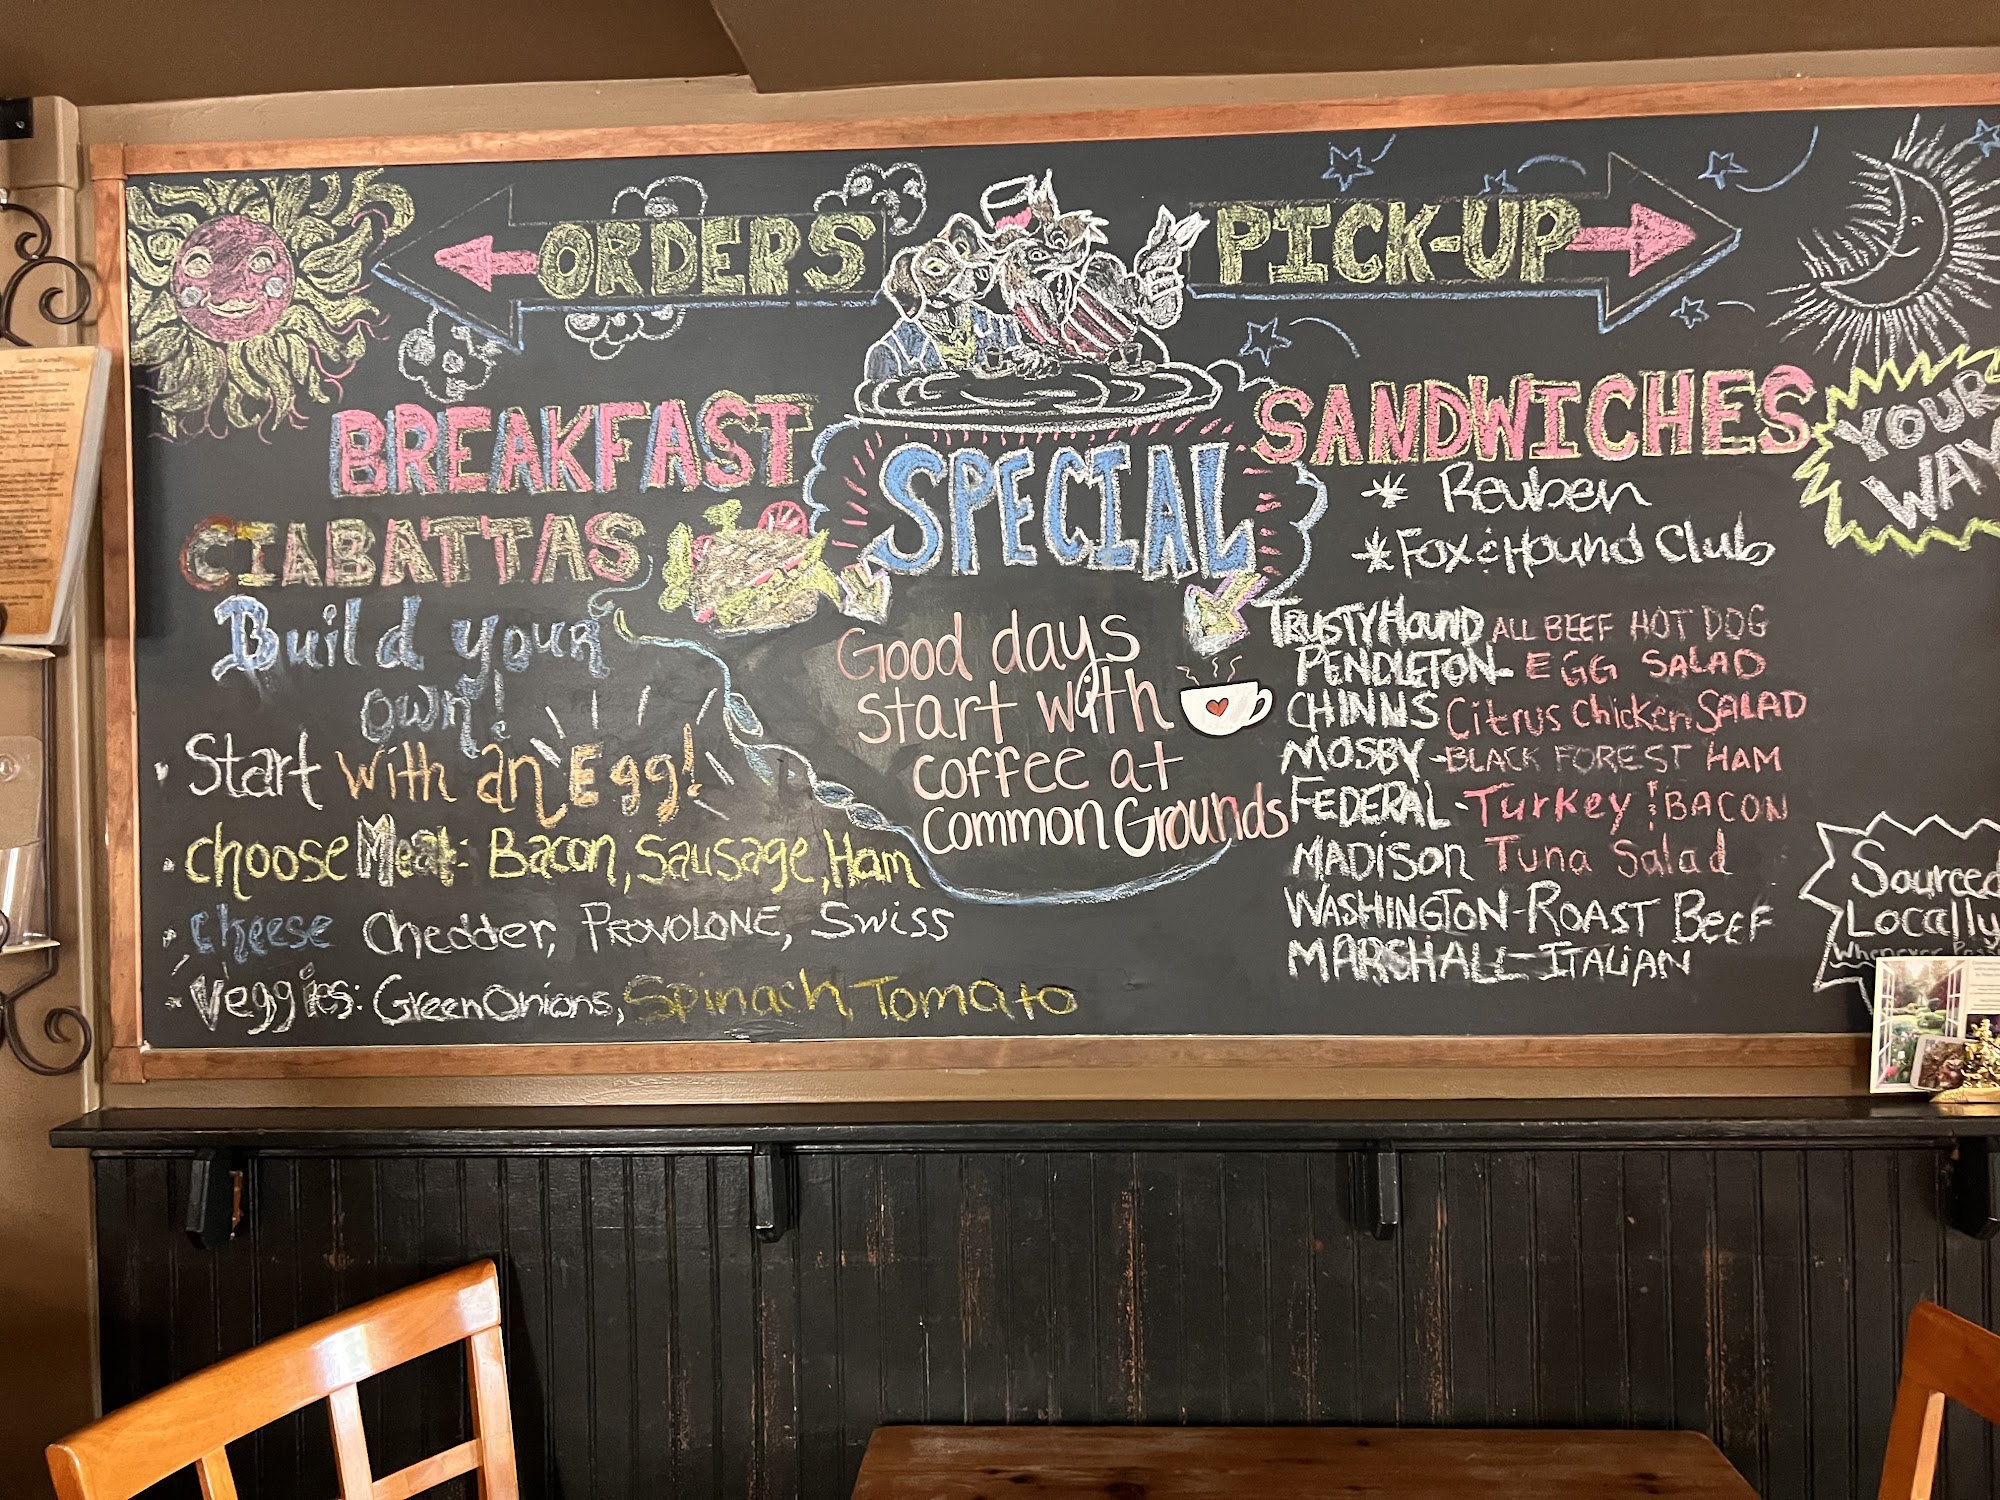 ORDERS
PICK-UP
BREAKFAST
CIABATTAS
Build your
own!
Start with an Egg!
choose Meat: Bacon, Sausage, Ham
cheese Chedder, PROVOLONE, Swiss
Veggies: Green Onions, Spinach, Tomato
SPECIAL
Good days
start with
coffee at
Common Grounds
SANDWICHES
* Reuben
* Fox & Hound Club
TRUSTY HOUND ALL BEEF HOT DOG
PENDLETON- EGG SALAD
CHINNS Citrus Chicken SALAD
MOSBY - BLACK FOREST HAM
FEDERAL - Turkey & BACON
MADISON Tuna Salad
WASHINGTON-ROAST BEEF
MARSHALL-ITALIAN
YOUR
WAY
Sourced
Locally
Whenever